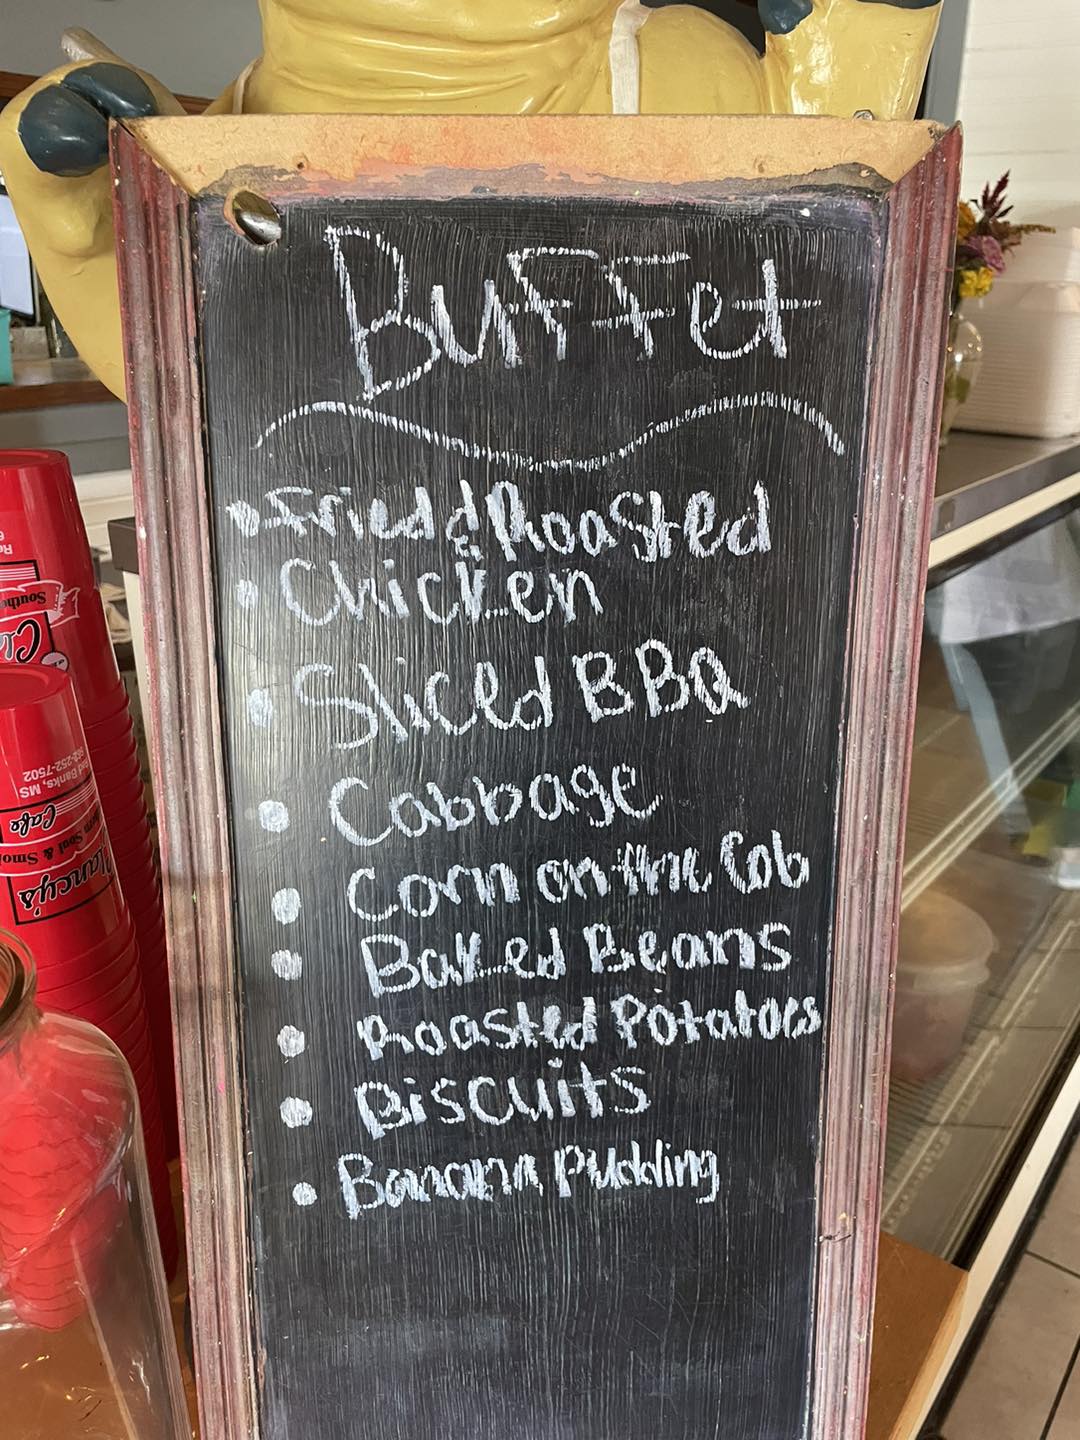 Buffet
• Fried & Roasted
• Chicken
• Sliced BBQ
• Cabbage
• Corn on the Cob
• Baked Beans
• Roasted Potatoes
• Biscuits
• Banana Pudding
Clancy's
Cafe
Red Banks, MS
662-252-7502